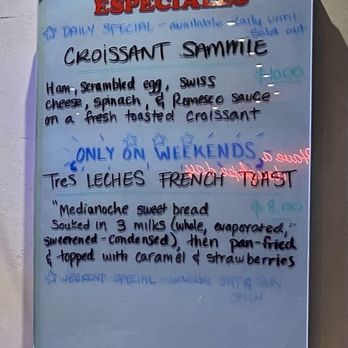 ESPECIALES
☆ DAILY SPECIAL - available daily until
sold out
CROISSANT SAMMIE
$10.00
Ham, scrambled egg, swiss
cheese, spinach, & Romesco sauce
on a fresh toasted croissant
ONLY ON WEEKENDS
Tres LECHES FRENCH TOAST
$8.00
"Medianoche sweet bread
Soaked in 3 milks (whole, evaporated,
sweetened-condensed), then pan-fried
& topped with caramel & strawberries
☆ WEEKEND SPECIAL - available SAT & SUN
ONLY